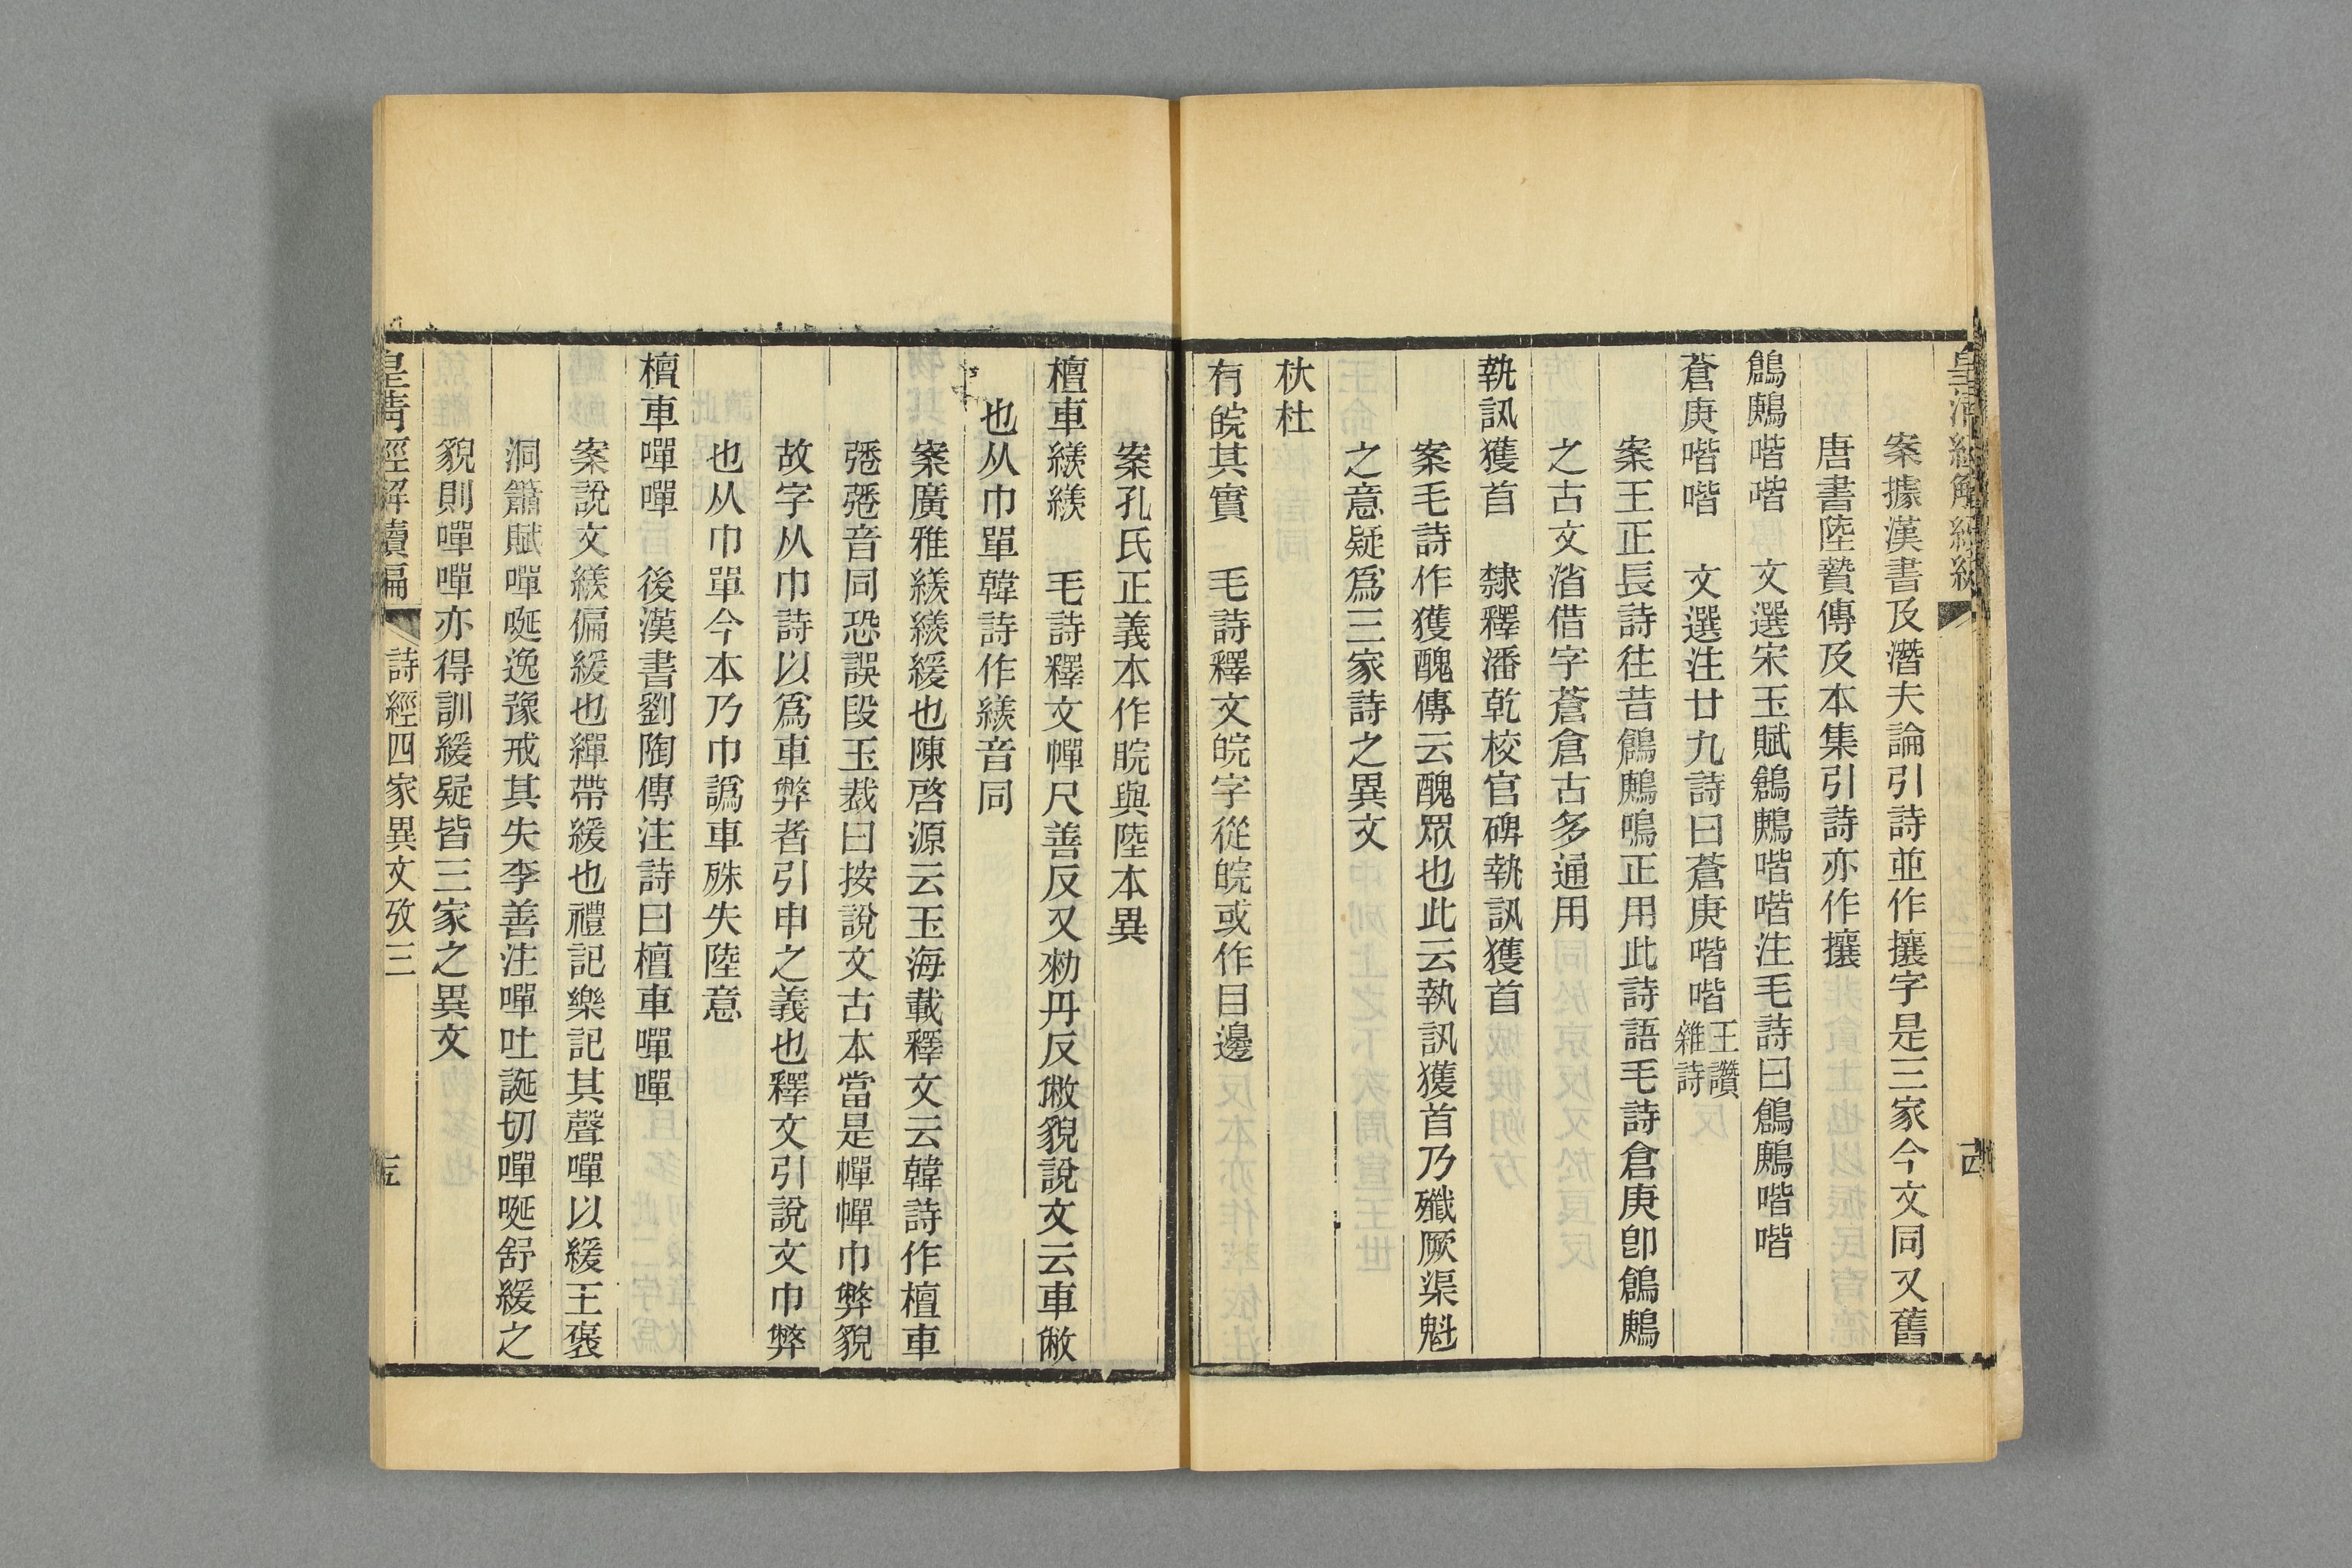 案據漢書及潛夫論引詩並作攘字是三家今文同又舊
唐書陸贄傳及本集引詩亦作攘
鶬鶊喈喈　文選宋玉賦鶬鶊喈喈注毛詩曰鶬鶊喈喈
蒼庚喈喈　文選注廿九詩曰蒼庚喈喈王讚雜詩
案王正長詩往昔鶬鶊鳴正用此詩語毛詩倉庚卽鶬鶊
之古文渻借字蒼倉古多通用
執訊獲首　隸釋潘乾校官碑執訊獲首
案毛詩作獲醜傳云醜眾也此云執訊獲首乃殲厥渠魁
之意疑爲三家詩之異文
杕杜
有皖其實　毛詩釋文皖字從皖或作目邊
案孔氏正義本作睆與陸本異
檀車繏繏　毛詩釋文幝尺善反又勑丹反敝貌說文云車敝
也从巾單韓詩作繏音同
案廣雅繏繏緩也陳啓源云玉海載釋文云韓詩作檀車
𢐲𢐲音同恐誤段玉裁曰按說文古本當是幝幝巾弊貌
故字从巾詩以爲車弊者引申之義也釋文引說文巾弊
也从巾單今本乃巾譌車殊失陸意
檀車嘽嘽　後漢書劉陶傳注詩曰檀車嘽嘽
案說文繏偏緩也繟帶緩也禮記樂記其聲嘽以緩王褒
洞簫賦嘽唌逸豫戒其失李善注嘽吐誕切嘽唌舒緩之
貌則嘽嘽亦得訓緩疑皆三家之異文
皇清經解續編　詩經四家異文攷三